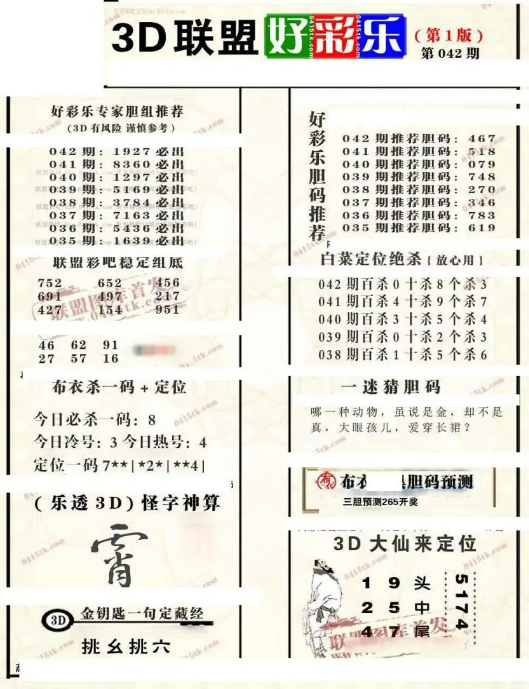 3D联盟 好彩乐 (第1版)
第042期
好彩乐专家胆组推荐
(3D有风险 谨慎参考)
042期:1927必出
041期:8360必出
040期:1297必出
039期:5169必出
038期:3784必出
037期:7163必出
036期:5436必出
035期:1639必出
联盟彩吧稳定组底
752 652 456
691 497 217
427 154 951
46 62 91
27 57 16
布衣杀一码+定位
今日必杀一码:8
今日冷号:3 今日热号:4
定位一码7**|*2*|**4|
(乐透3D)怪字神算
霄
3D 金钥匙一句定藏经
挑幺挑六
好彩乐胆码推荐
042期推荐胆码:467
041期推荐胆码:518
040期推荐胆码:079
039期推荐胆码:748
038期推荐胆码:270
037期推荐胆码:346
036期推荐胆码:783
035期推荐胆码:619
白菜定位绝杀{放心用}
042期百杀0十杀8个杀3
041期百杀4十杀9个杀7
040期百杀3十杀5个杀4
039期百杀0十杀2个杀3
038期百杀1十杀5个杀6
一迷猜胆码
哪一种动物,虽说是金,却不是
真,大眼孩儿,爱穿长裙?
布衣 胆码预测
三胆预测265开奖
3D大仙来定位
1 9 头
2 5 中
4 7 尾
5174